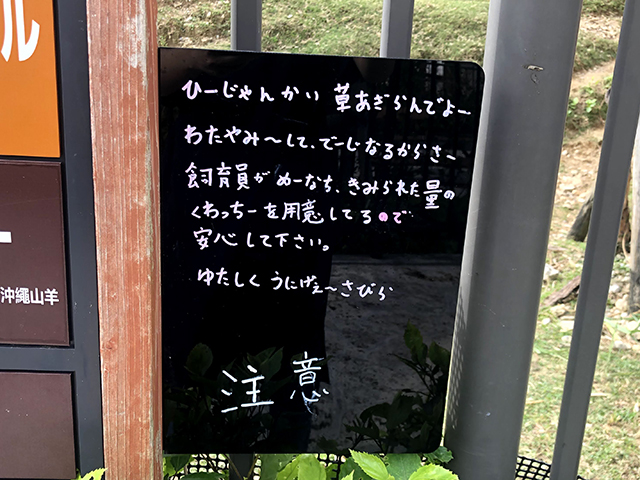 ル
ー
沖縄山羊
ひーじゃんかい 草あぎらんでよー
わたやみ〜して、でーじなるからさー
飼育員が めーなち、きみられた量の
くわっちーを用意してるので
安心して下さい。
ゆたしく うにげぇ〜さびら
注意